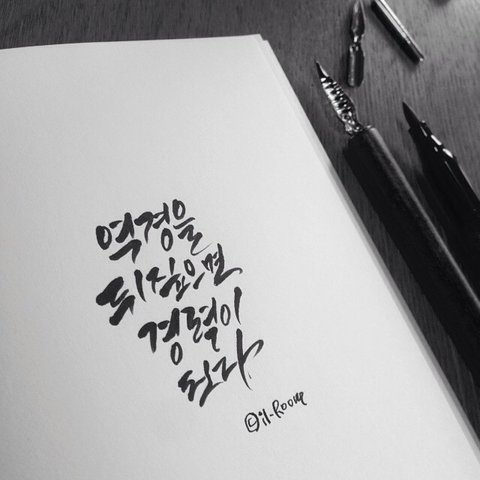 역경을
뒤집으면
경력이
된다
©il-Room